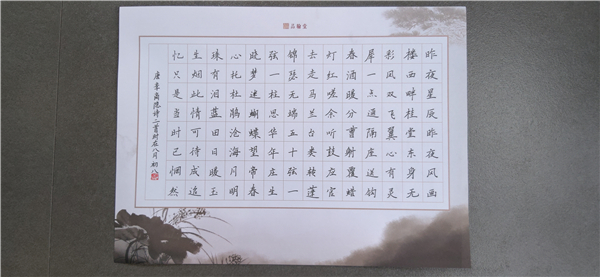 品翰堂
昨夜星辰昨夜风画
楼西畔桂堂东身无
彩凤双飞翼心有灵
犀一点通隔座送钩
春酒暖分曹射覆蜡
灯红嗟余听鼓应官
去走马兰台类转蓬
锦瑟无端五十弦一
弦一柱思华年庄生
晓梦迷蝴蝶望帝春
心托杜鹃沧海月明
珠有泪蓝田日暖玉
生烟此情可待成追
忆只是当时已惘然
唐李商隐诗二首时在八月初八